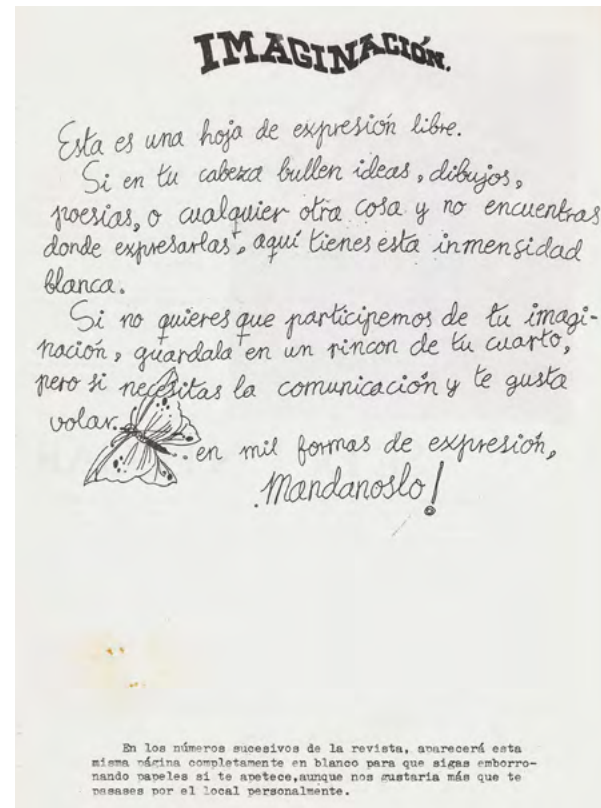 IMAGINACIÓN.
Esta es una hoja de expresión libre.
Si en tu cabeza bullen ideas, dibujos,
poesias, o cualquier otra cosa y no encuentras
donde expresarlas, aquí tienes esta inmensidad
blanca.
Si no quieres que participemos de tu imagi-
nación, guardala en un rincon de tu cuarto,
pero si necesitas la comunicación y te gusta
volar...
...en mil formas de expresión,
Mandanoslo!
En los números sucesivos de la revista, aparecerá esta
misma página completamente en blanco para que sigas emborro-
nando papeles si te apetece,aunque nos gustaria más que te
pasases por el local personalmente.